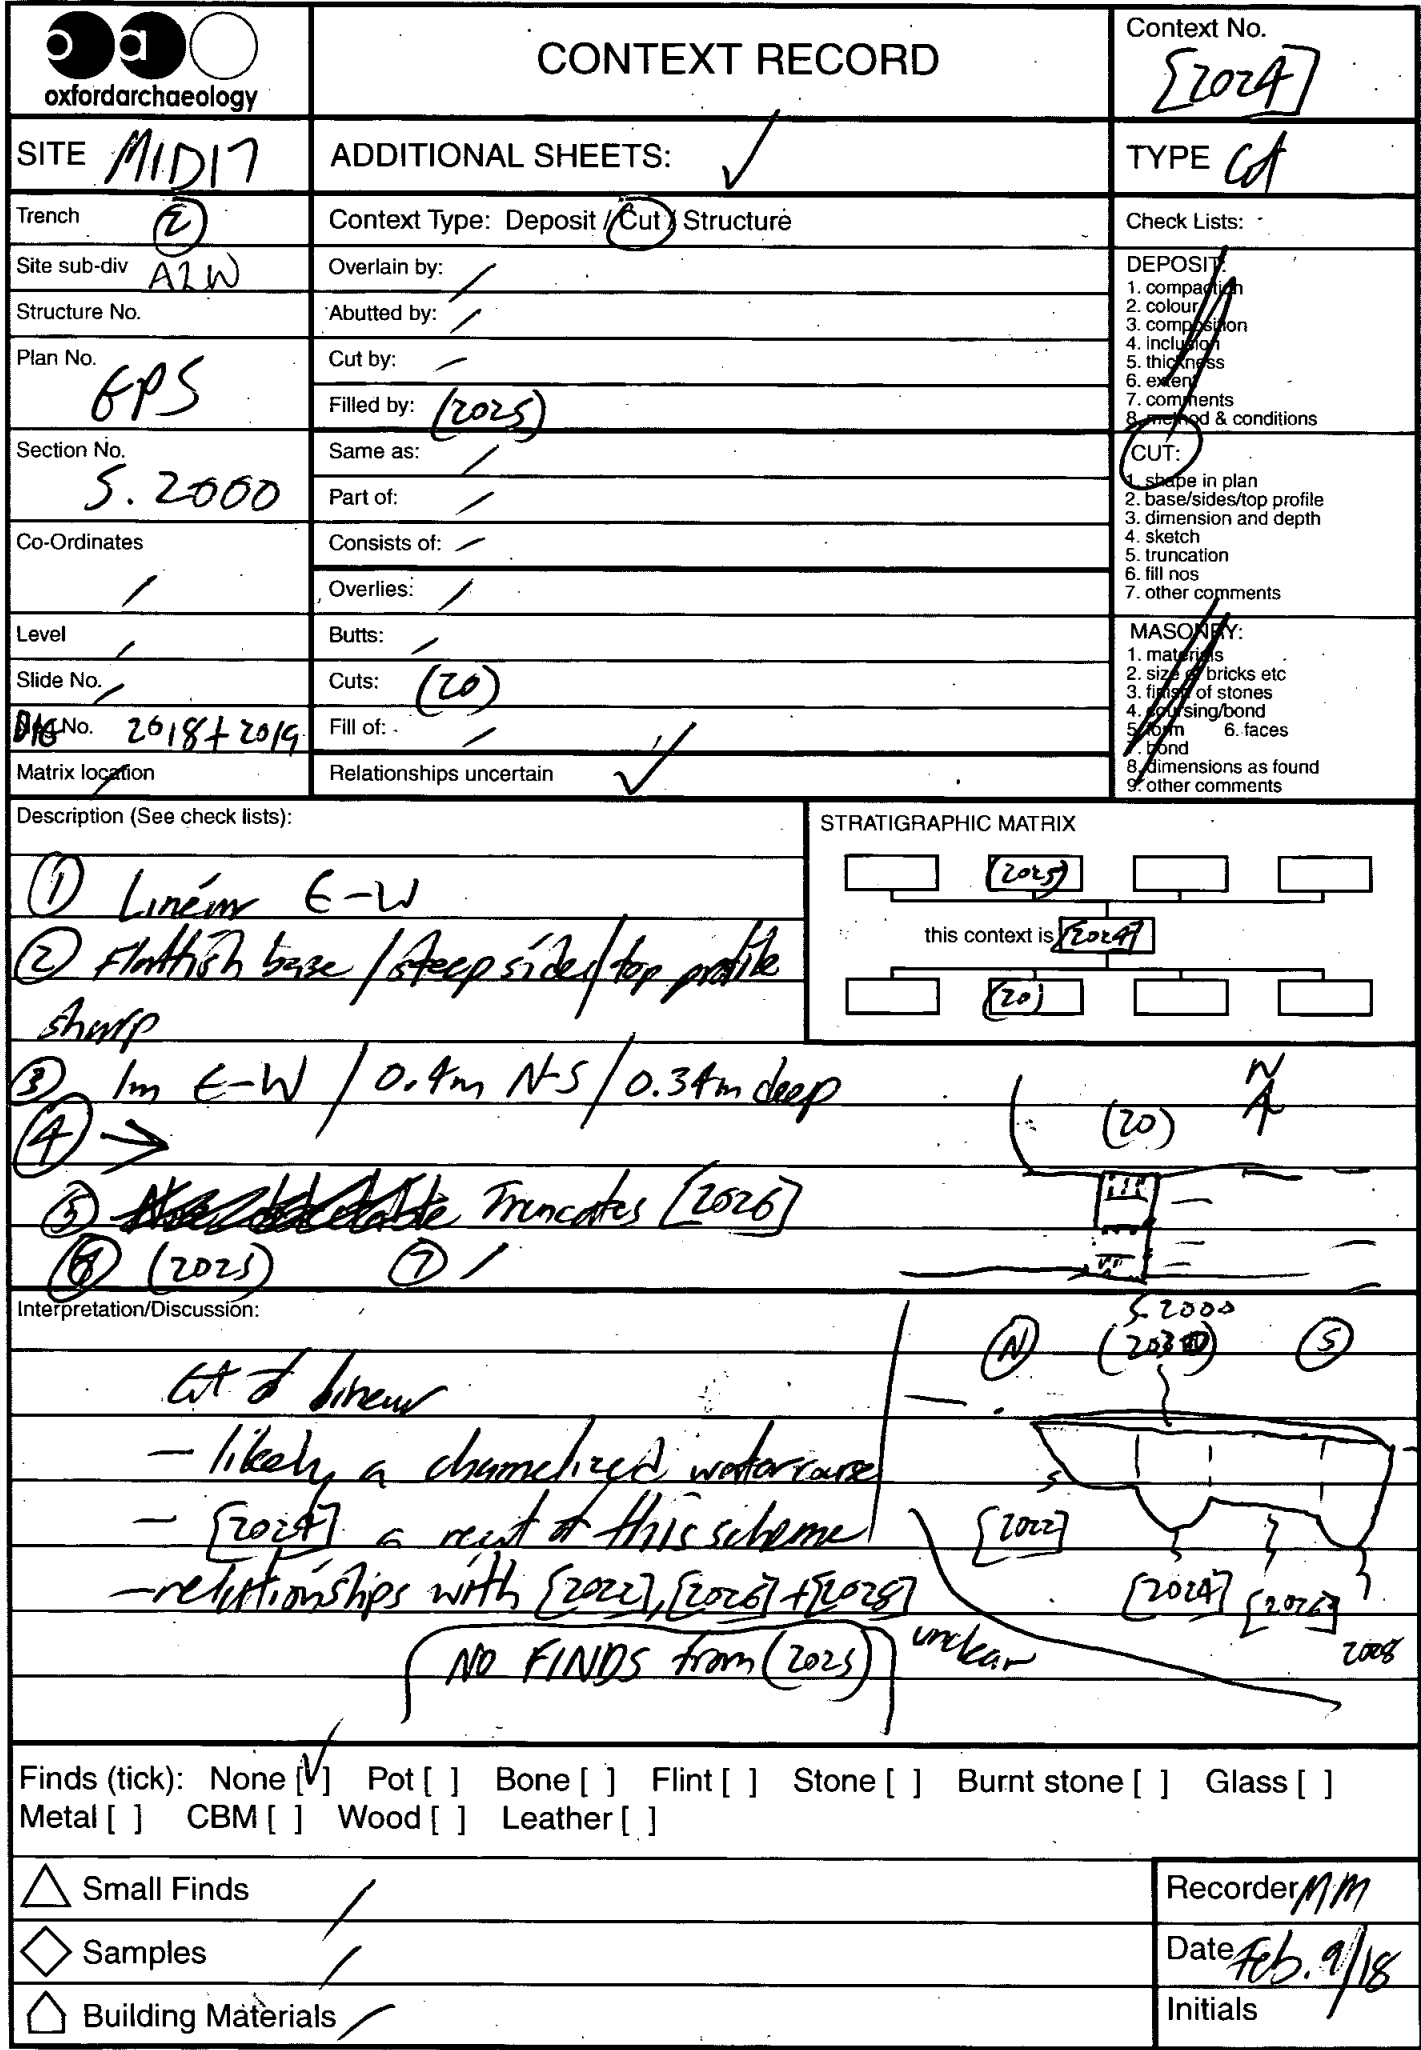 oxfordarchaeology
CONTEXT RECORD
Context No.
[2024]
SITE MID17
ADDITIONAL SHEETS: ✓
TYPE Cut
Trench 2
Context Type: Deposit / Cut / Structure
Check Lists:
Site sub-div A2W
Overlain by: /
Structure No.
Abutted by: /
Plan No. GPS
Cut by: /
Filled by: (2025)
Section No. S. 2000
Same as: /
Part of: /
Co-Ordinates /
Consists of: /
Overlies: /
Level /
Butts: /
Slide No. /
Cuts: (20)
DIG No. 2018 + 2019
Fill of: /
Matrix location /
Relationships uncertain ✓
DEPOSIT:
1. compaction
2. colour
3. composition
4. inclusion
5. thickness
6. extent
7. comments
8. method & conditions
CUT:
1. shape in plan
2. base/sides/top profile
3. dimension and depth
4. sketch
5. truncation
6. fill nos
7. other comments
MASONRY:
1. materials
2. size of bricks etc
3. finish of stones
4. coursing/bond
5. form 6. faces
7. bond
8. dimensions as found
9. other comments
Description (See check lists):
① Linear E-W
② Flattish base / steep sides / top profile
sharp
③ 1m E-W / 0.4m N-S / 0.34m deep
④ →
⑤ Truncates [2026]
⑥ (2025) ⑦ /
STRATIGRAPHIC MATRIX
(2025)
this context is [2024]
(20)
N
(20)
S. 2000
Interpretation/Discussion:
Cut of linear
- likely a channelized watercourse
- [2024] a recut of this scheme
- relationships with [2022], [2026] + [2028]
unclear
NO FINDS from (2025)
N S
[2022]
[2024] [2026]
2028
Finds (tick): None [✓] Pot [ ] Bone [ ] Flint [ ] Stone [ ] Burnt stone [ ] Glass [ ]
Metal [ ] CBM [ ] Wood [ ] Leather [ ]
Small Finds /
Samples /
Building Materials /
Recorder MM
Date Feb. 9/18
Initials